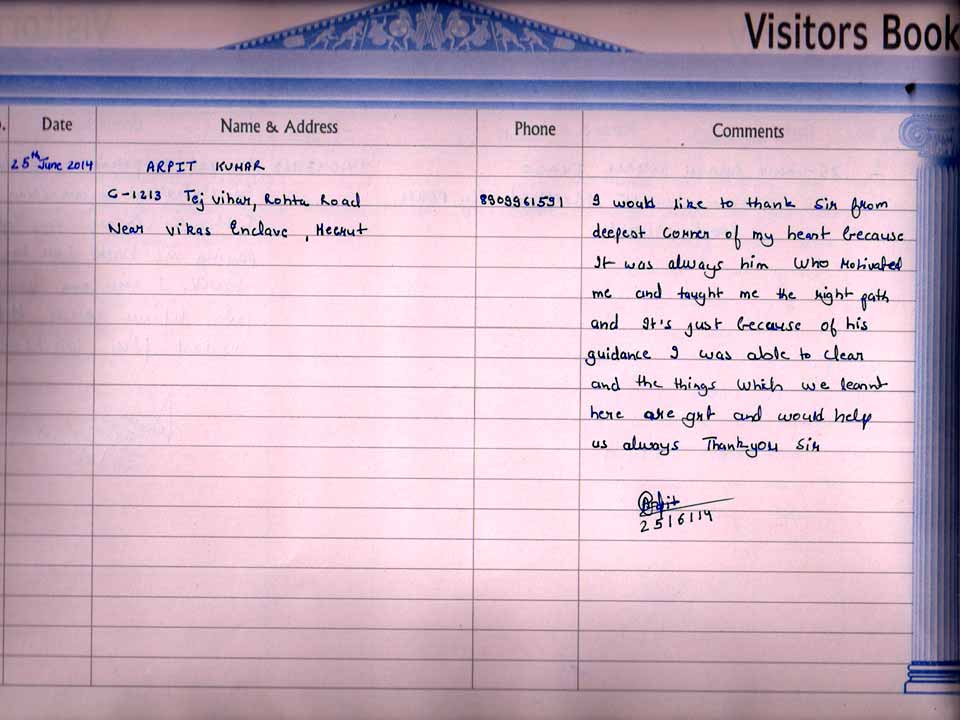 Visitors Book
Date Name & Address Phone Comments
25th June 2014 ARPIT KUMAR
C-1213 Tej vihar, Rohta Road 8909961591 I would like to thank Sir from
Near Vikas Enclave, Meerut deepest corner of my heart because
It was always him who motivated
me and taught me the right path
and It's just because of his
guidance I was able to clear
and the things which we learnt
here are grt and would help
us always Thankyou Sir
Arpit
25/6/14